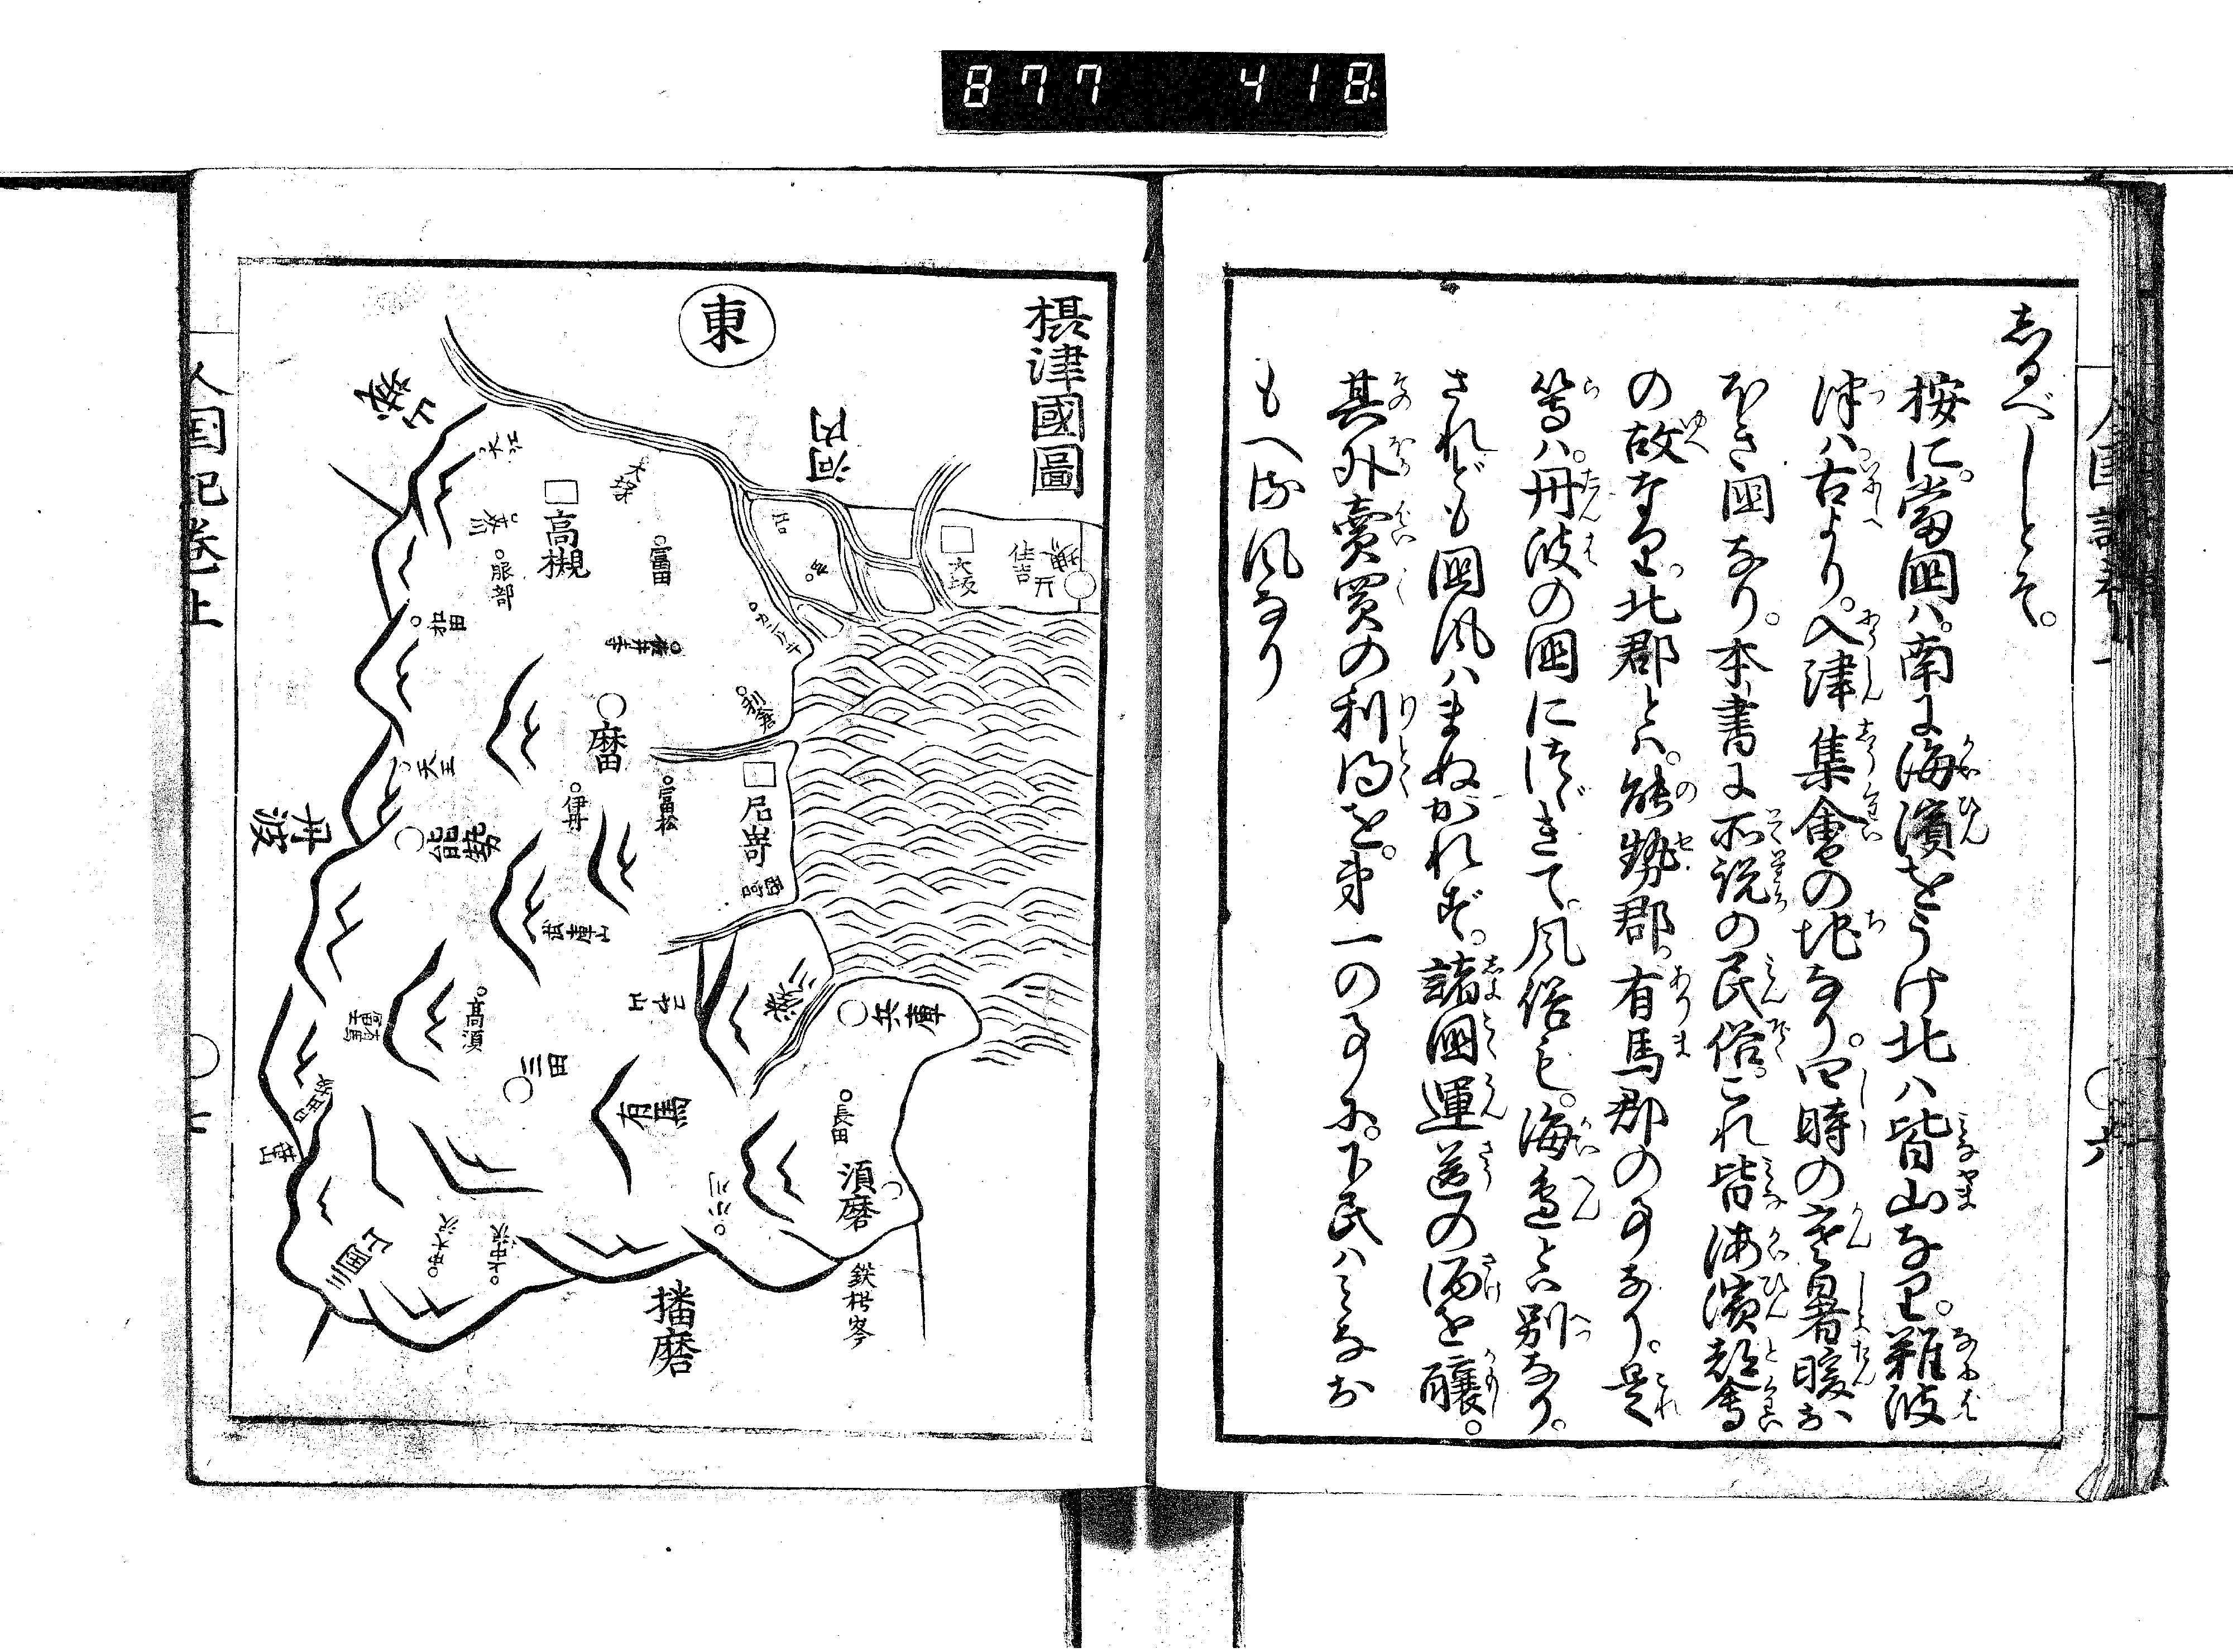 877 418
しるべしとぞ。
按に。當國ハ。南に海濱をうけ北ハ皆山なり。難波
津ハ古より。入津集會の地なり。四時の寒暑暖か
ふき國なり。本書に所説の民俗。これ皆海濱都會
の故なり。北郡とハ。能勢郡。有馬郡の事なり。是
等ハ。丹波の國につゞきて。風俗も。海邉とハ別なり。
されども國風ハまぬがれず。諸國運送の酒を醸。
其外賣買の利得を。第一の事に。下民ハミなお
もへる風なり
摂津國圖
東
河内
山城
丹波
播磨
高槻
大塚
富田
服部
大坂
住吉
天王
能勢
伊丹
富松
尼嵜
武庫山
兵庫
高須
三田
有馬
長田
須磨
小川
鉄枴峯
三国山
人国記巻上